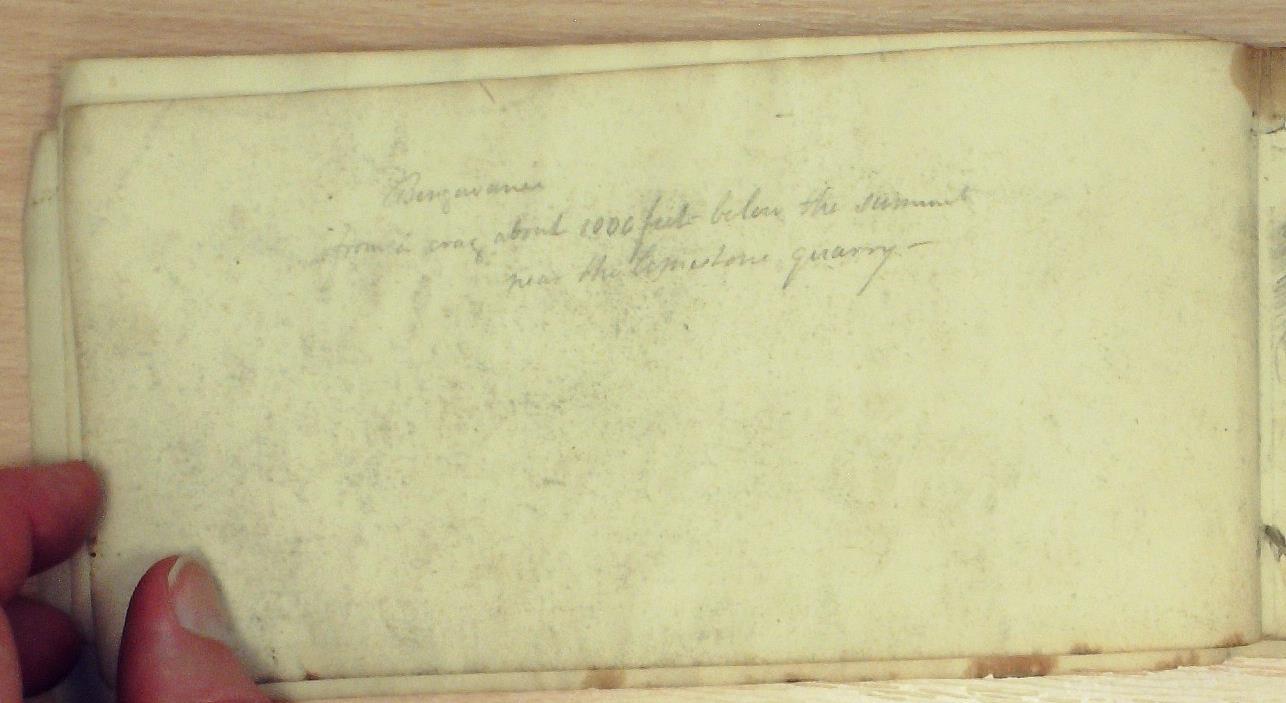 Bengavanie
from a crag about 1000 feet below the summit
near the limestone quarry –